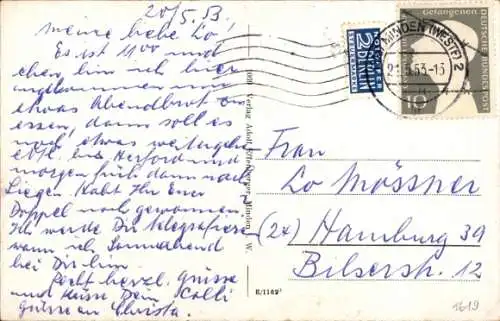 20/5.53
Meine liebe Lo!
Es ist 11⁰⁰ und
eben bin ich hier
angekommen um
etwas Abendbrot zu
essen, dann soll es
noch etwas weitergehen
evtl. bis Herford und
morgen früh dann nach
Siegen. Habt Ihr Euer
Doppel noch gewonnen.
Ich werde Dir telegrafieren
wann ich Sonnabend
bei Dir bin.
Recht herzl. Grüsse
und Küsse Dein Colli
Grüsse an Christa.
Verlag Adolf Eftenberger, Minden i. W.
E/1149
NOTOPFER
2
BERLIN
STEUERMARKE
MINDEN (WESTF) 2
21.5.53-13
Gefangenen
DEUTSCHE BUNDESPOST
10
Frau
Lo Mössner
(24) Hamburg 39
Bilserstr. 12
1619